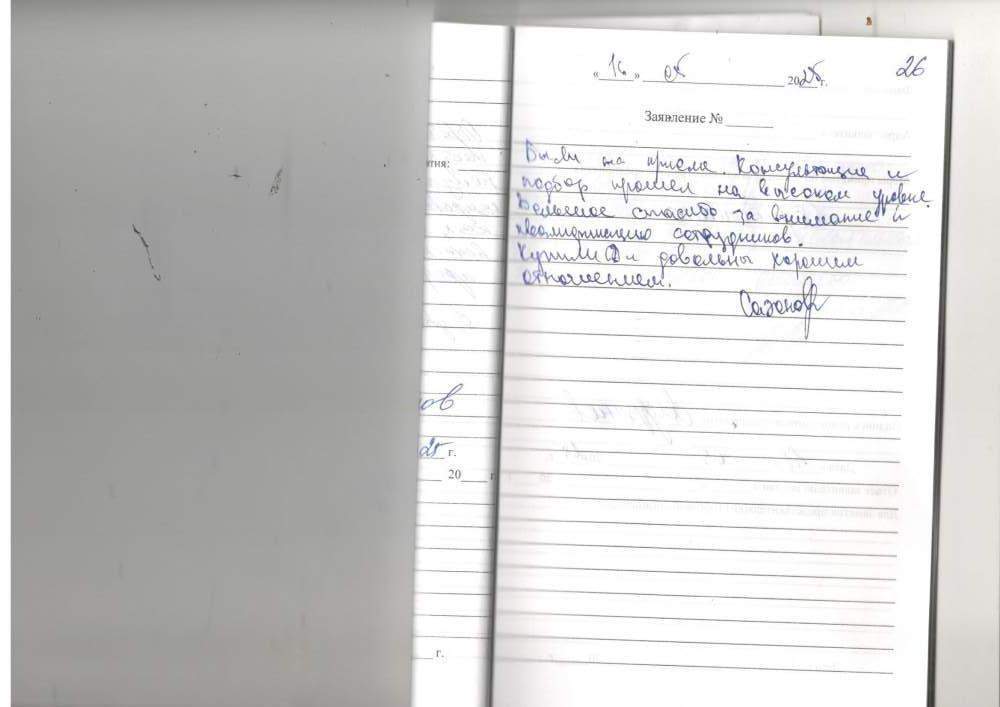 26
«16» 05 2025 г.
Заявление №
Были на приеме. Консультация и
подбор прошел на высоком уровне.
Большое спасибо за внимание и
квалификацию сотрудников.
Купили и довольны хорошим
отношением.
ятия:
ов
25 г.
20 г
г.